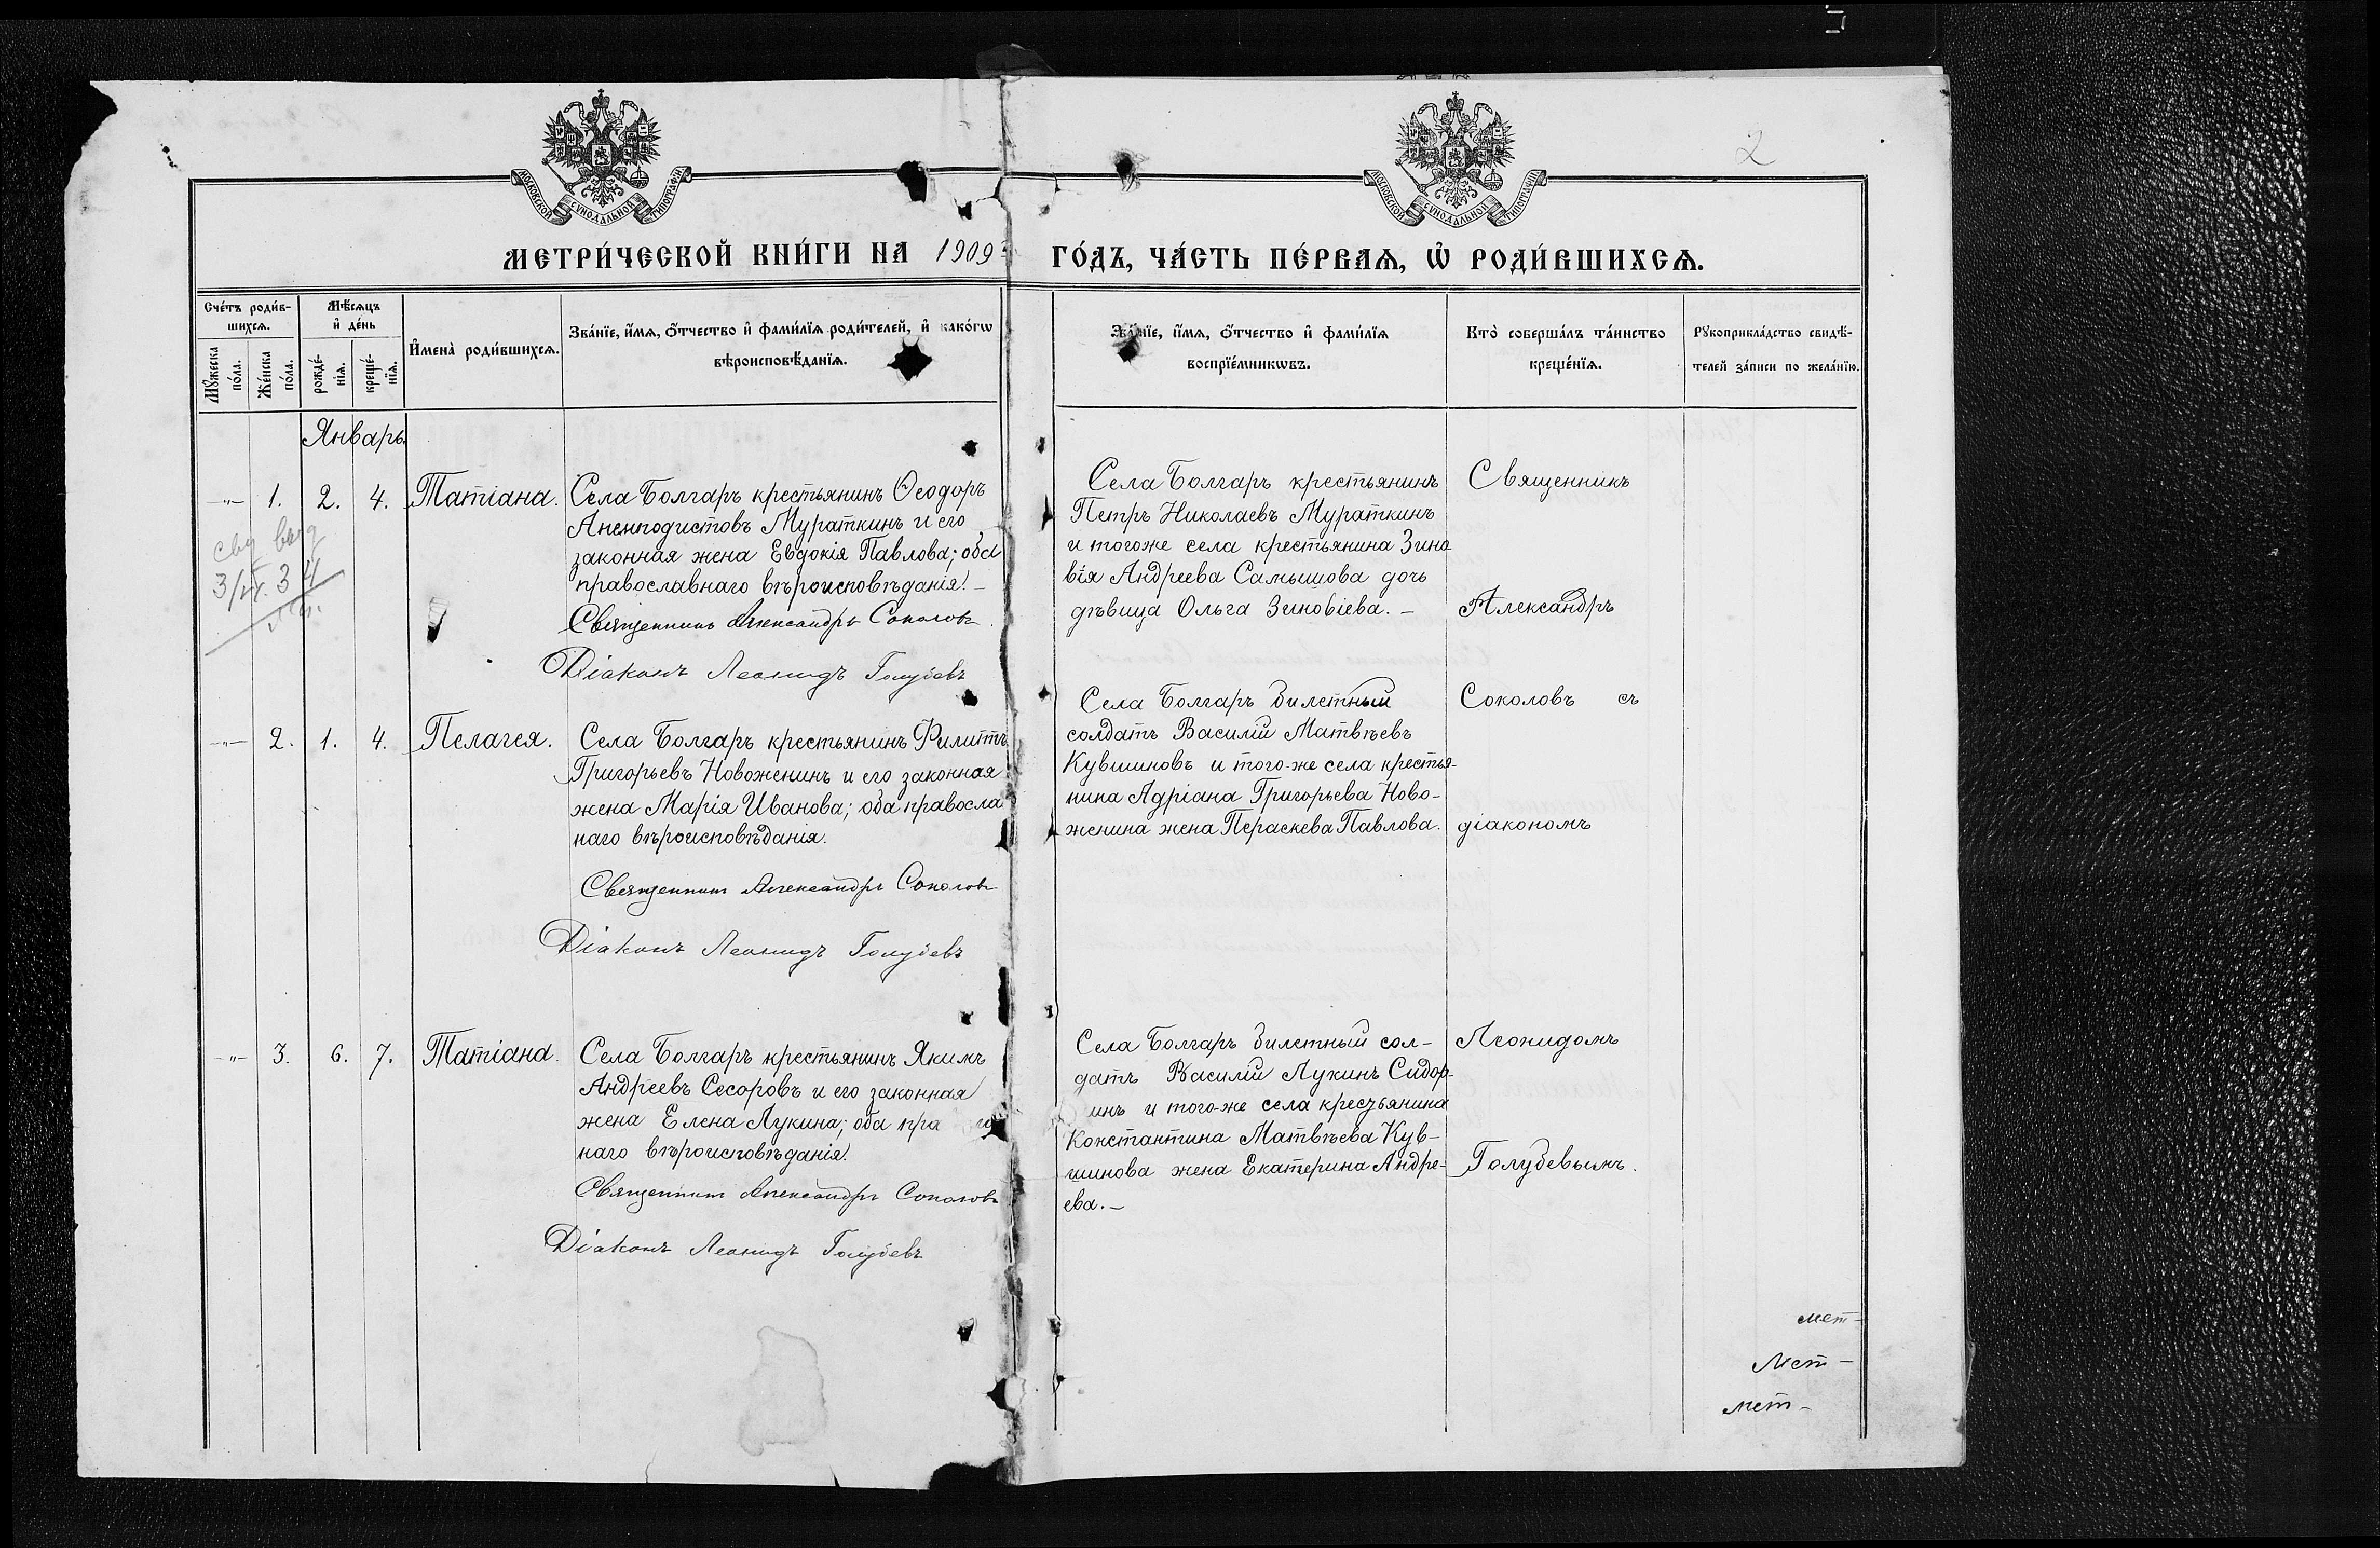 2
МОСКОВСКОЙ СѴНОДАЛЬНОЙ ТИПОГРАФІИ
МОСКОВСКОЙ СѴНОДАЛЬНОЙ ТИПОГРАФІИ
МЕТРИ́ЧЕСКОЙ КНИ́ГИ НА 1909 ГО́ДЪ, ЧА́СТЬ ПЕ́РВАѦ, Ѡ҆ РОДИ́ВШИХСѦ.
Сче́тъ роди́в-
шихсѧ.
Мꙋ́жеска
по́ла.
Же́нска
по́ла.
Мѣ́сѧцъ
и҆ де́нь
рожде́-
нїѧ.
креще́-
нїѧ.
И҆мена̀ роди́вшихсѧ.
Зва́нїе, и҆́мѧ, ѻ҆́тчество и҆ фами́лїѧ роди́телей, и҆ како́гѡ
вѣроисповѣ́данїѧ.
Зва́нїе, и҆́мѧ, ѻ҆́тчество и҆ фами́лїѧ
воспрїе́мникѡвъ.
Кто̀ соверша́лъ та́инство
креще́нїѧ.
Рꙋкоприкла́дство свидѣ́-
телей за́писи по жела́нїю.
Январь.
-"- 1. 2. 4. Татіана.
Села Болгаръ крестьянинъ Ѳеодоръ
Анемподистовъ Мураткинъ и его
законная жена Евдокія Павлова; оба
православнаго вѣроисповѣданія. –
Священникъ Александръ Соколовъ
Діаконъ Леонидъ Голубевъ
Села Болгаръ крестьянинъ
Петръ Николаевъ Мураткинъ
и тогоже села крестьянина Зино
вія Андреева Самышова дочь
дѣвица Ольга Зиновіева. –
Священникъ
Александръ
-"- 2. 1. 4. Пелагея.
Села Болгаръ крестьянинъ Филиппъ
Григорьевъ Новоженинъ и его законная
жена Марія Иванова; оба правосла
наго вѣроисповѣданія.
Священникъ Александръ Соколовъ
Діаконъ Леонидъ Голубевъ
Села Болгаръ билетный
солдатъ Василій Матвѣевъ
Кувшиновъ и того-же села крестья-
нина Адріана Григорьева Ново-
женина жена Параскева Павлова.
Соколовъ съ
діакономъ
-"- 3. 6. 7. Татіана.
Села Болгаръ крестьянинъ Якимъ
Андреевъ Сесоровъ и его законная
жена Елена Лукина; оба пра
наго вѣроисповѣданія.
Священникъ Александръ Соколовъ
Діаконъ Леонидъ Голубевъ
Села Болгаръ билетный сол-
датъ Василій Лукинъ Сидор-
инъ и того-же села крестьянина
Константина Матвѣева Кув-
шинова жена Екатерина Андре-
ева. –
Леонидомъ
Голубевымъ.
мет-
Мет-
мет-